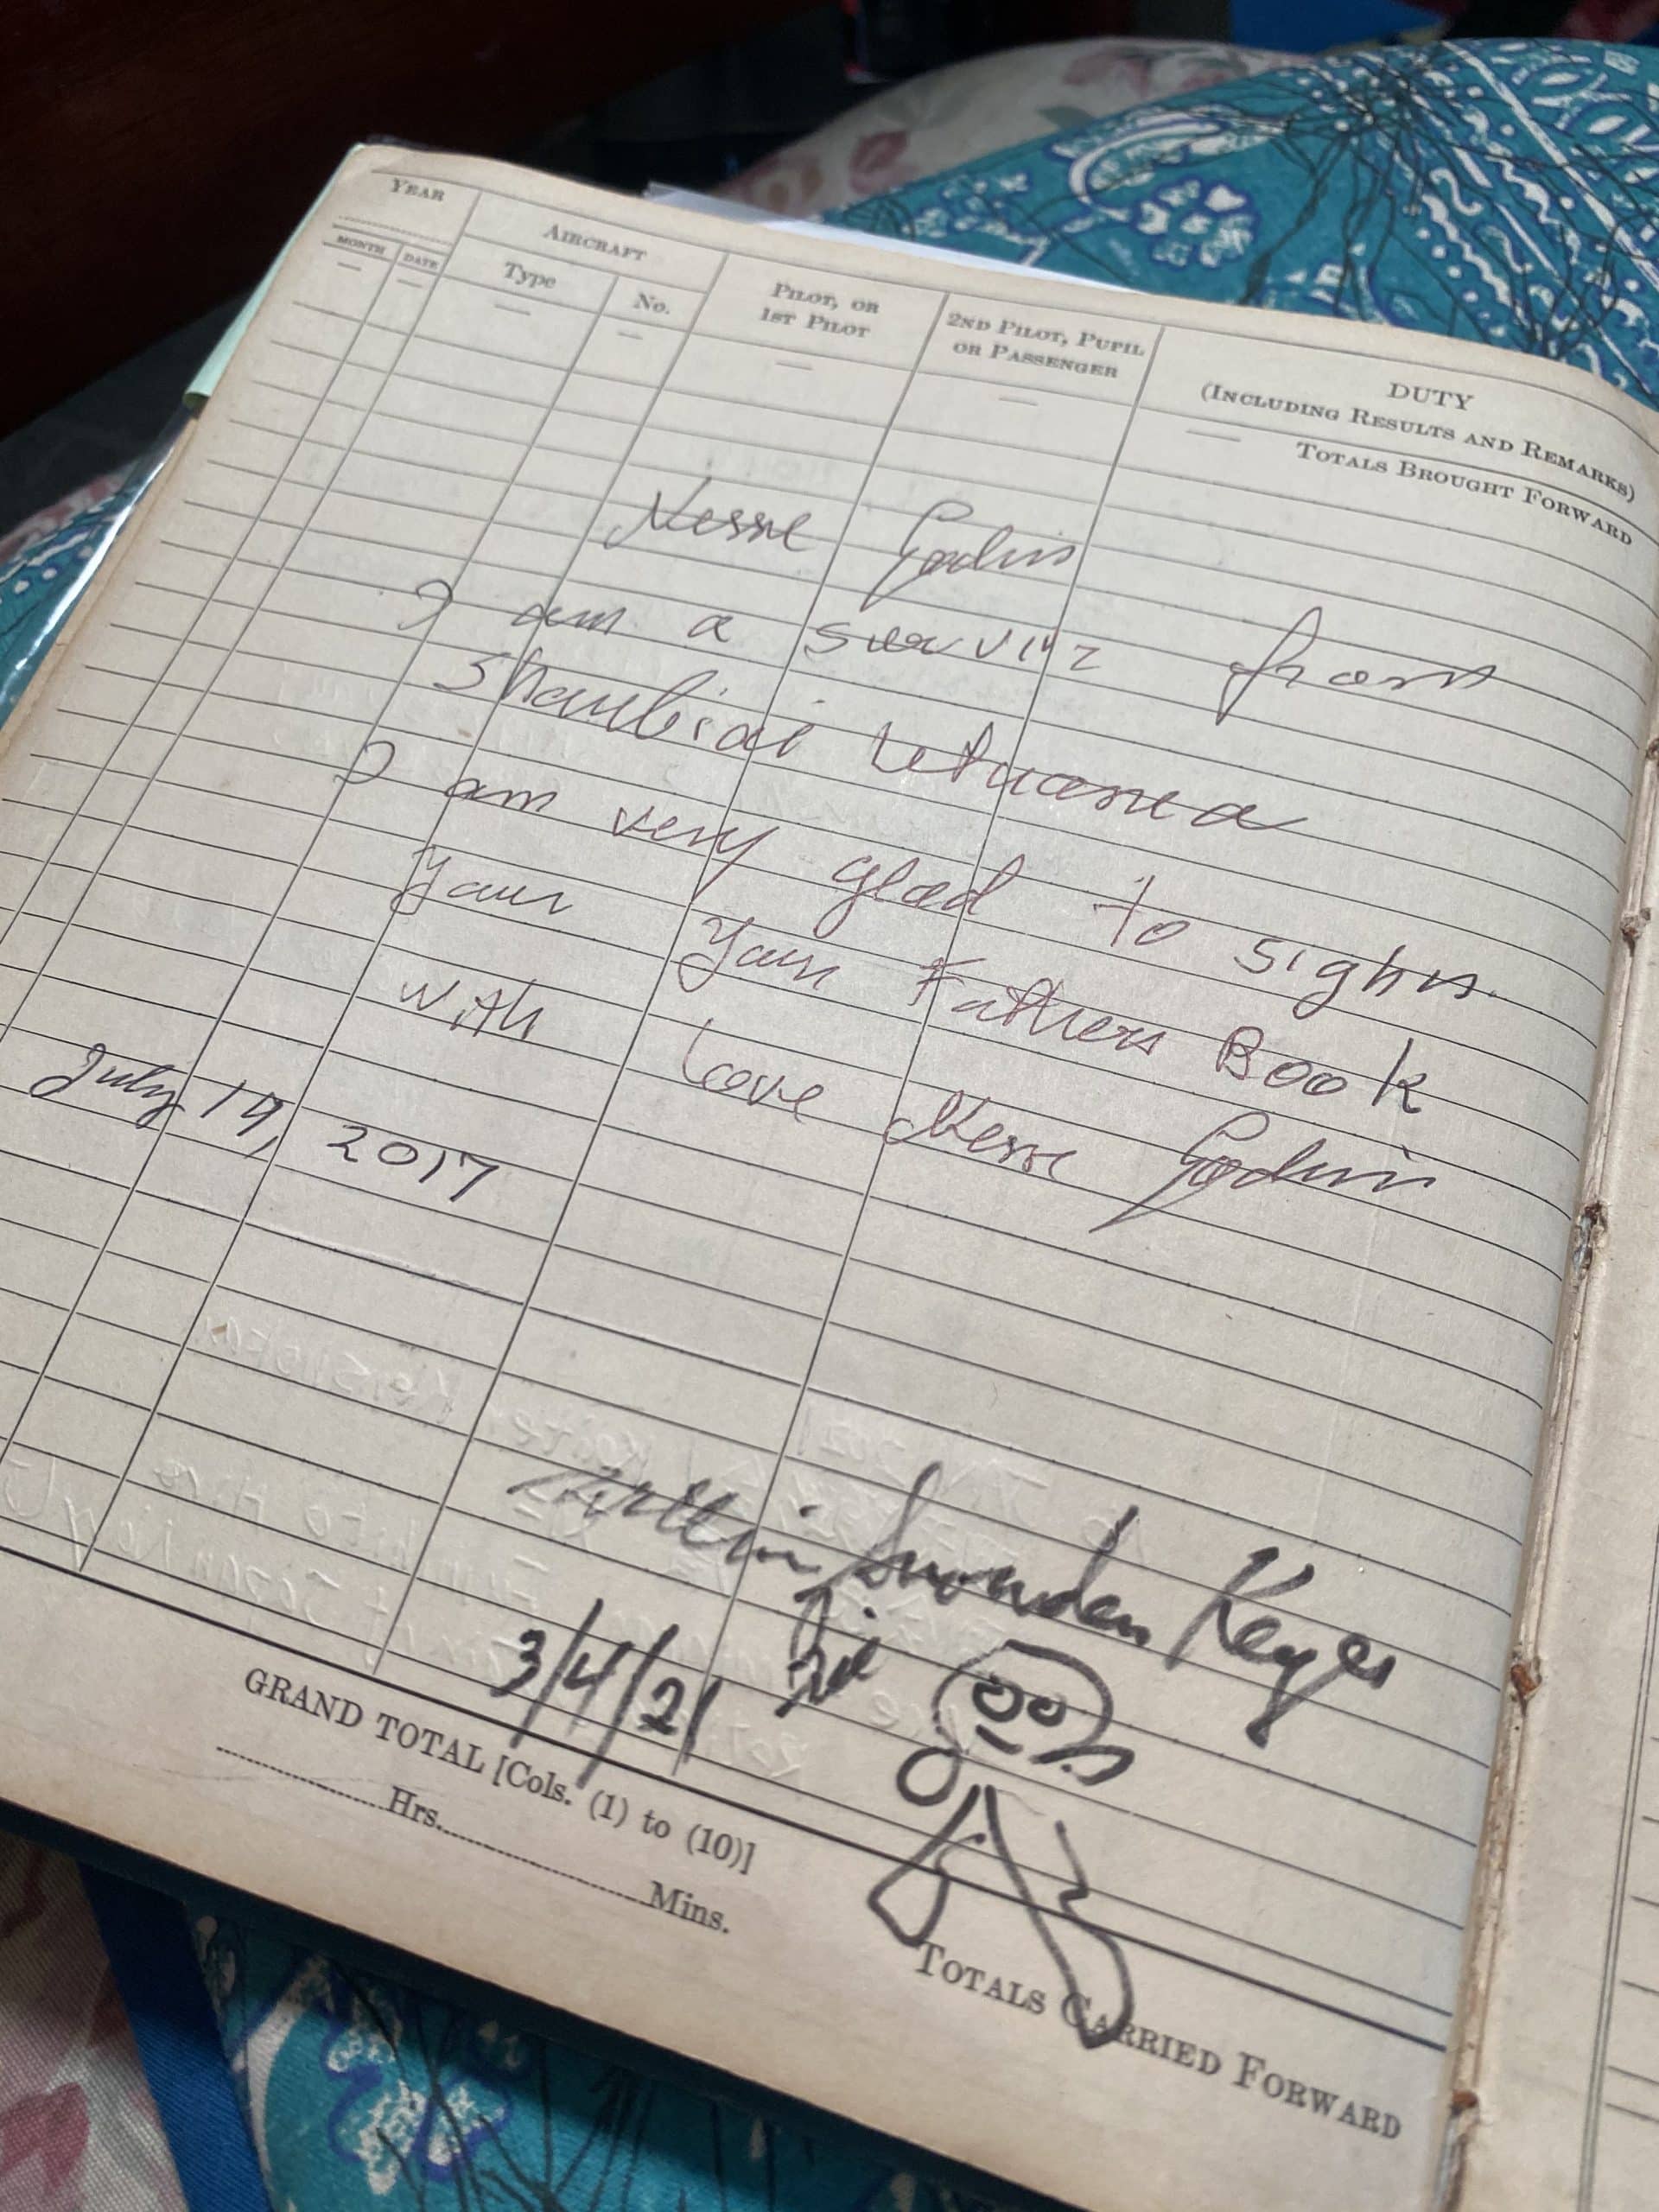 YEAR
AIRCRAFT
PILOT, OR
1ST PILOT
2ND PILOT, PUPIL
OR PASSENGER
DUTY
(INCLUDING RESULTS AND REMARKS)
MONTH DATE Type No.
TOTALS BROUGHT FORWARD
Nesse Godin
I am a from
Shauliai
I am very glad to sighn
Your Your Fathers Book
With Love Nesse Godin
July 19, 2017
Snowden Keyes
3/4/21
GRAND TOTAL [Cols. (1) to (10)]
Hrs. Mins.
TOTALS CARRIED FORWARD